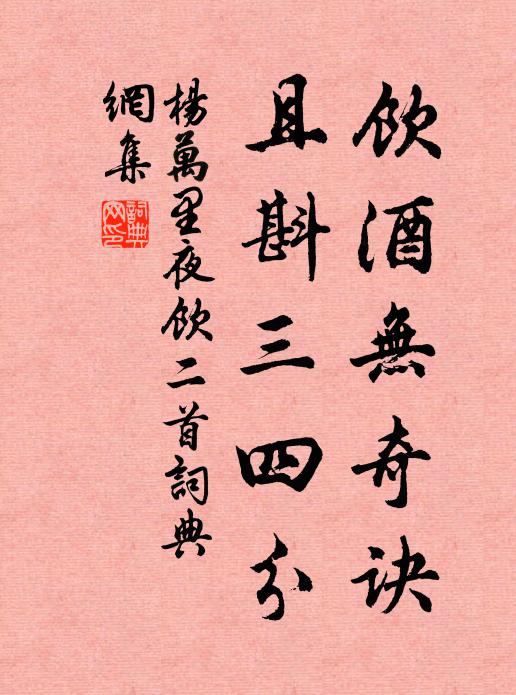 飲酒無奇訣
且斟三四分
楊萬里夜飲二首詞典
網集
詞典
网印